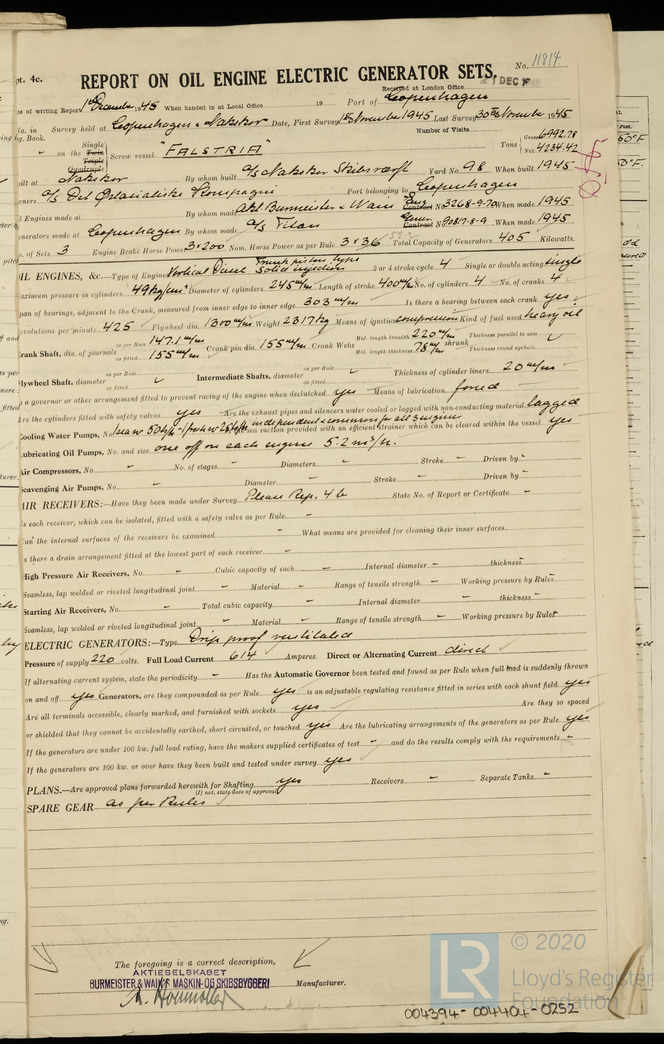 pt. 4c.
No. 11814
REPORT ON OIL ENGINE ELECTRIC GENERATOR SETS.
Received at London Office
DEC
of writing Report 1st December 1945 When handed in at Local Office 19 Port of Copenhagen
No. in Survey held at Copenhagen & Nakskov Date, First Survey 1st November 1945 Last Survey 30th November 1945
g. Book. Number of Visits
on the Single Twin Triple Quadruple Screw vessel "FALSTRIA" Tons Gross 6992.78 Net 4234.42
uilt at Nakskov By whom built A/S Nakskov Skibsværft Yard No. 98 When built 1945
wners A/S Det Østasiatiske Kompagni Port belonging to Copenhagen
l Engines made at By whom made Akt. Burmeister & Wain Eng. Contract No. 3268-9-70 When made 1945
enerators made at Copenhagen By whom made A/S Titan Gener. Contract No. When made 1945
o. of Sets 3 Engine Brake Horse Power 3x200 Nom. Horse Power as per Rule 3x36 Total Capacity of Generators 405 Kilowatts.
OIL ENGINES, &c.—Type of Engine Vertical Diesel Trunk piston type Solid injection 2 or 4 stroke cycle 4 Single or double acting single
aximum pressure in cylinders 49 kg/cm² Diameter of cylinders 245 m/m Length of stroke 400 m/m No. of cylinders 4 No. of cranks 4
pan of bearings, adjacent to the Crank, measured from inner edge to inner edge 303 m/m Is there a bearing between each crank yes
evolutions per minute 425 Flywheel dia. 1300 m/m Weight 2317 kg Means of ignition compression Kind of fuel used heavy oil
Crank Shaft, dia. of journals as per Rule 147.1 m/m as fitted 155 m/m Crank pin dia. 155 m/m Crank Webs Mid. length breadth 220 m/m Mid. length thickness 78 m/m shrunk Thickness parallel to axis Thickness round eyehole
Flywheel Shaft, diameter as per Rule as fitted Intermediate Shafts, diameter as per Rule as fitted Thickness of cylinder liners 20 m/m
s a governor or other arrangement fitted to prevent racing of the engine when declutched yes Means of lubrication forced
Are the cylinders fitted with safety valves yes Are the exhaust pipes and silencers water cooled or lagged with non-conducting material lagged
Cooling Water Pumps, No. independent & common for all 3 engines sea suction provided with an efficient strainer which can be cleared within the vessel yes
Lubricating Oil Pumps, No. and size one off on each engine 5.2 m³/h.
Air Compressors, No. - No. of stages - Diameters - Stroke - Driven by -
Scavenging Air Pumps, No. - Diameter - Stroke - Driven by -
AIR RECEIVERS:—Have they been made under Survey Please Rep. 4b State No. of Report or Certificate -
s each receiver, which can be isolated, fitted with a safety valve as per Rule -
an the internal surfaces of the receivers be examined - What means are provided for cleaning their inner surfaces
s there a drain arrangement fitted at the lowest part of each receiver -
High Pressure Air Receivers, No. - Cubic capacity of each - Internal diameter - thickness -
Seamless, lap welded or riveted longitudinal joint - Material - Range of tensile strength - Working pressure by Rules
Starting Air Receivers, No. - Total cubic capacity - Internal diameter - thickness -
Seamless, lap welded or riveted longitudinal joint - Material - Range of tensile strength - Working pressure by Rules
ELECTRIC GENERATORS:—Type Drip proof ventilated
Pressure of supply 220 volts. Full Load Current 614 Amperes. Direct or Alternating Current direct
If alternating current system, state the periodicity - Has the Automatic Governor been tested and found as per Rule when full load is suddenly thrown
on and off yes Generators, are they compounded as per Rule yes is an adjustable regulating resistance fitted in series with each shunt field yes
Are all terminals accessible, clearly marked, and furnished with sockets yes Are they so spaced
or shielded that they cannot be accidentally earthed, short circuited, or touched yes Are the lubricating arrangements of the generators as per Rule yes
If the generators are under 100 kw. full load rating, have the makers supplied certificates of test - and do the results comply with the requirements -
If the generators are 100 kw. or over have they been built and tested under survey yes
PLANS.—Are approved plans forwarded herewith for Shafting yes Receivers - Separate Tanks -
(If not, state date of approval)
SPARE GEAR as per Rules
The foregoing is a correct description,
AKTIESELSKABET
BURMEISTER & WAIN'S MASKIN- OG SKIBSBYGGERI Manufacturer.
LR © 2020
Lloyd's Register
Foundation
004394-004404-0252